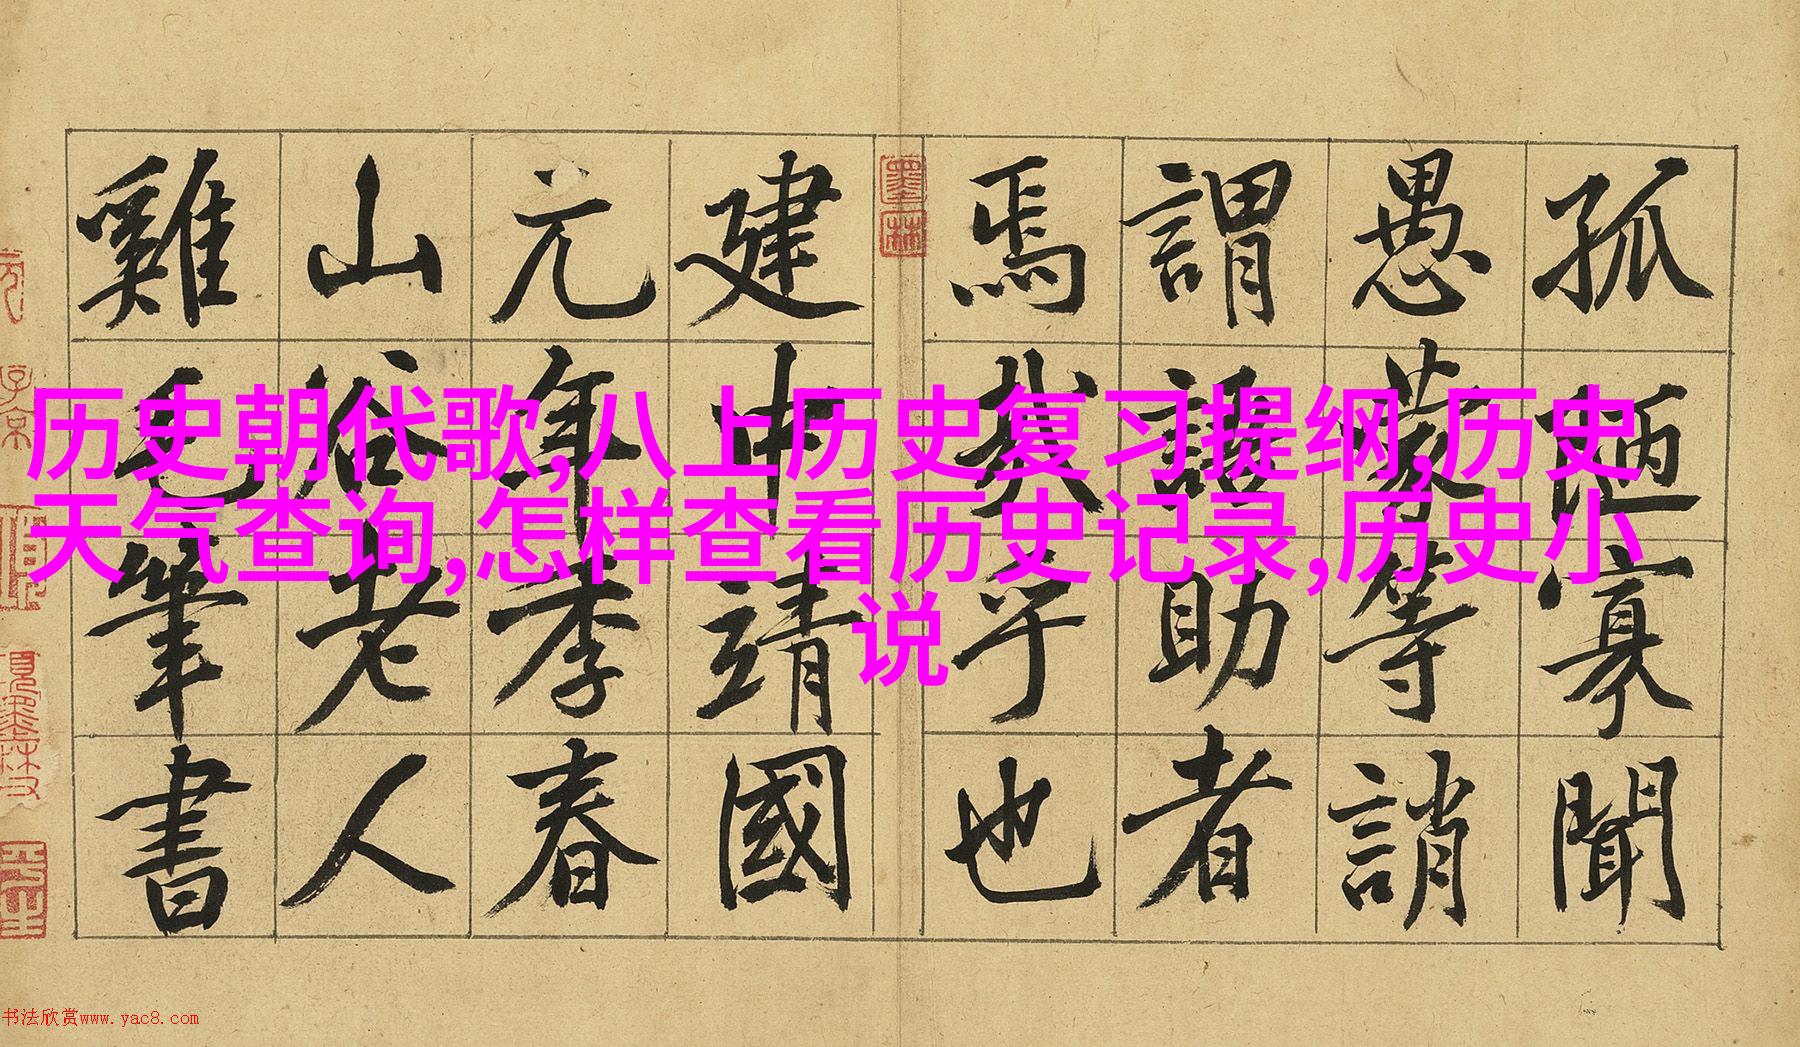 孤陋寡聞
愚蒙等誚
謂語助者
焉哉乎也
建中靖國
元年季春
山谷老人
雞毛筆書
墨林
历史朝代歌,八上历史复习提纲,历史
天气查询,怎样查看历史记录,历史小
说
书法欣赏www.yac8.com